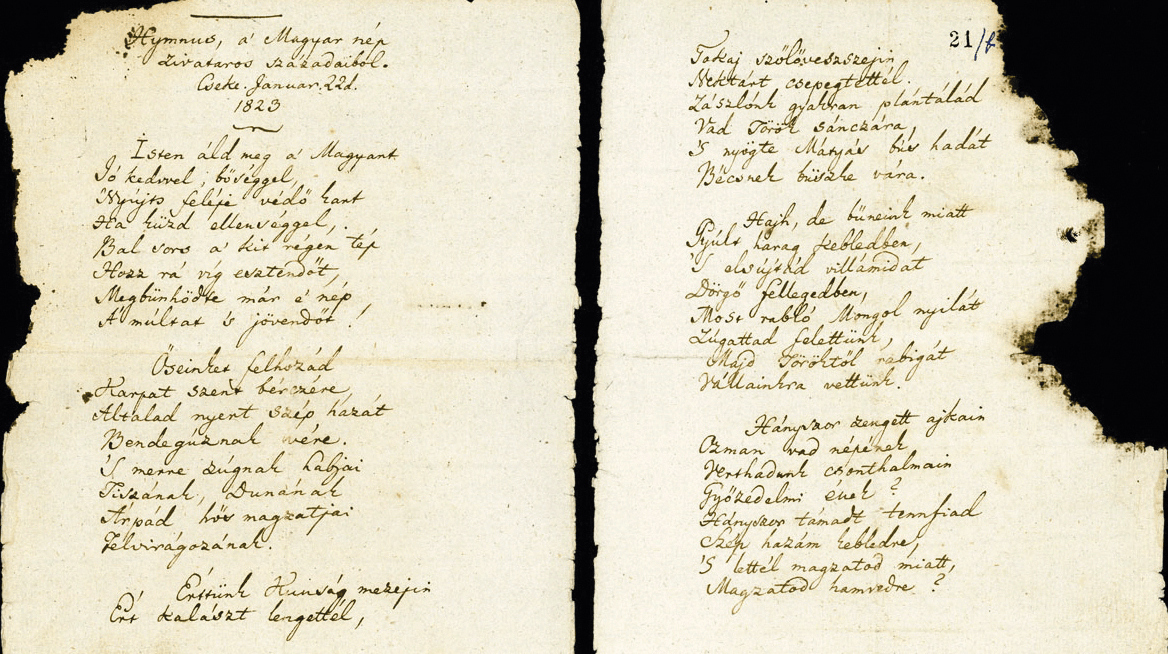 Hymnus, a' Magyar nép
zivataros századaiból.
Cseke Januar. 22d.
1823
Isten áld meg a' Magyart
Jó kedvvel, bőséggel,
Nyújts feléje védő kart
Ha küzd ellenséggel,
Bal sors a' kit régen tép
Hozz rá víg esztendőt,
Megbünhödte már e' nép
A' múltat 's jövendőt!
Őseinket felhozád
Kárpát szent bérczére,
Általad nyert szép hazát
Bendegúznak vére.
'S merre zúgnak habjai
Tiszának, Dunának
Árpád hős magzatjai
Felvirágozának.
Értünk Kunság mezejin
Ért kalászt lengettél,
21/b
Tokaj szőlővesszejin
Nektárt csepegtettél.
Zászlónk gyakran plántálád
Vad Török sánczára,
'S nyögte Mátyás bús hadát
Bécsnek büszke vára.
Hajh, de bűneink miatt
Gyúlt harag kebledben,
'S elsújtád villámidat
Dörgő fellegedben,
Most rabló Mongol nyilát
Zúgattad felettünk,
Majd Töröktől rabigát
Vállainkra vettünk.
Hányszor zengett ajkain
Ozman vad népének
Vert hadunk csonthalmain
Győzedelmi ének?
Hányszor támadt tennfiad
Szép hazám kebledre,
'S lettél magzatod miatt,
Magzatod hamvedre?